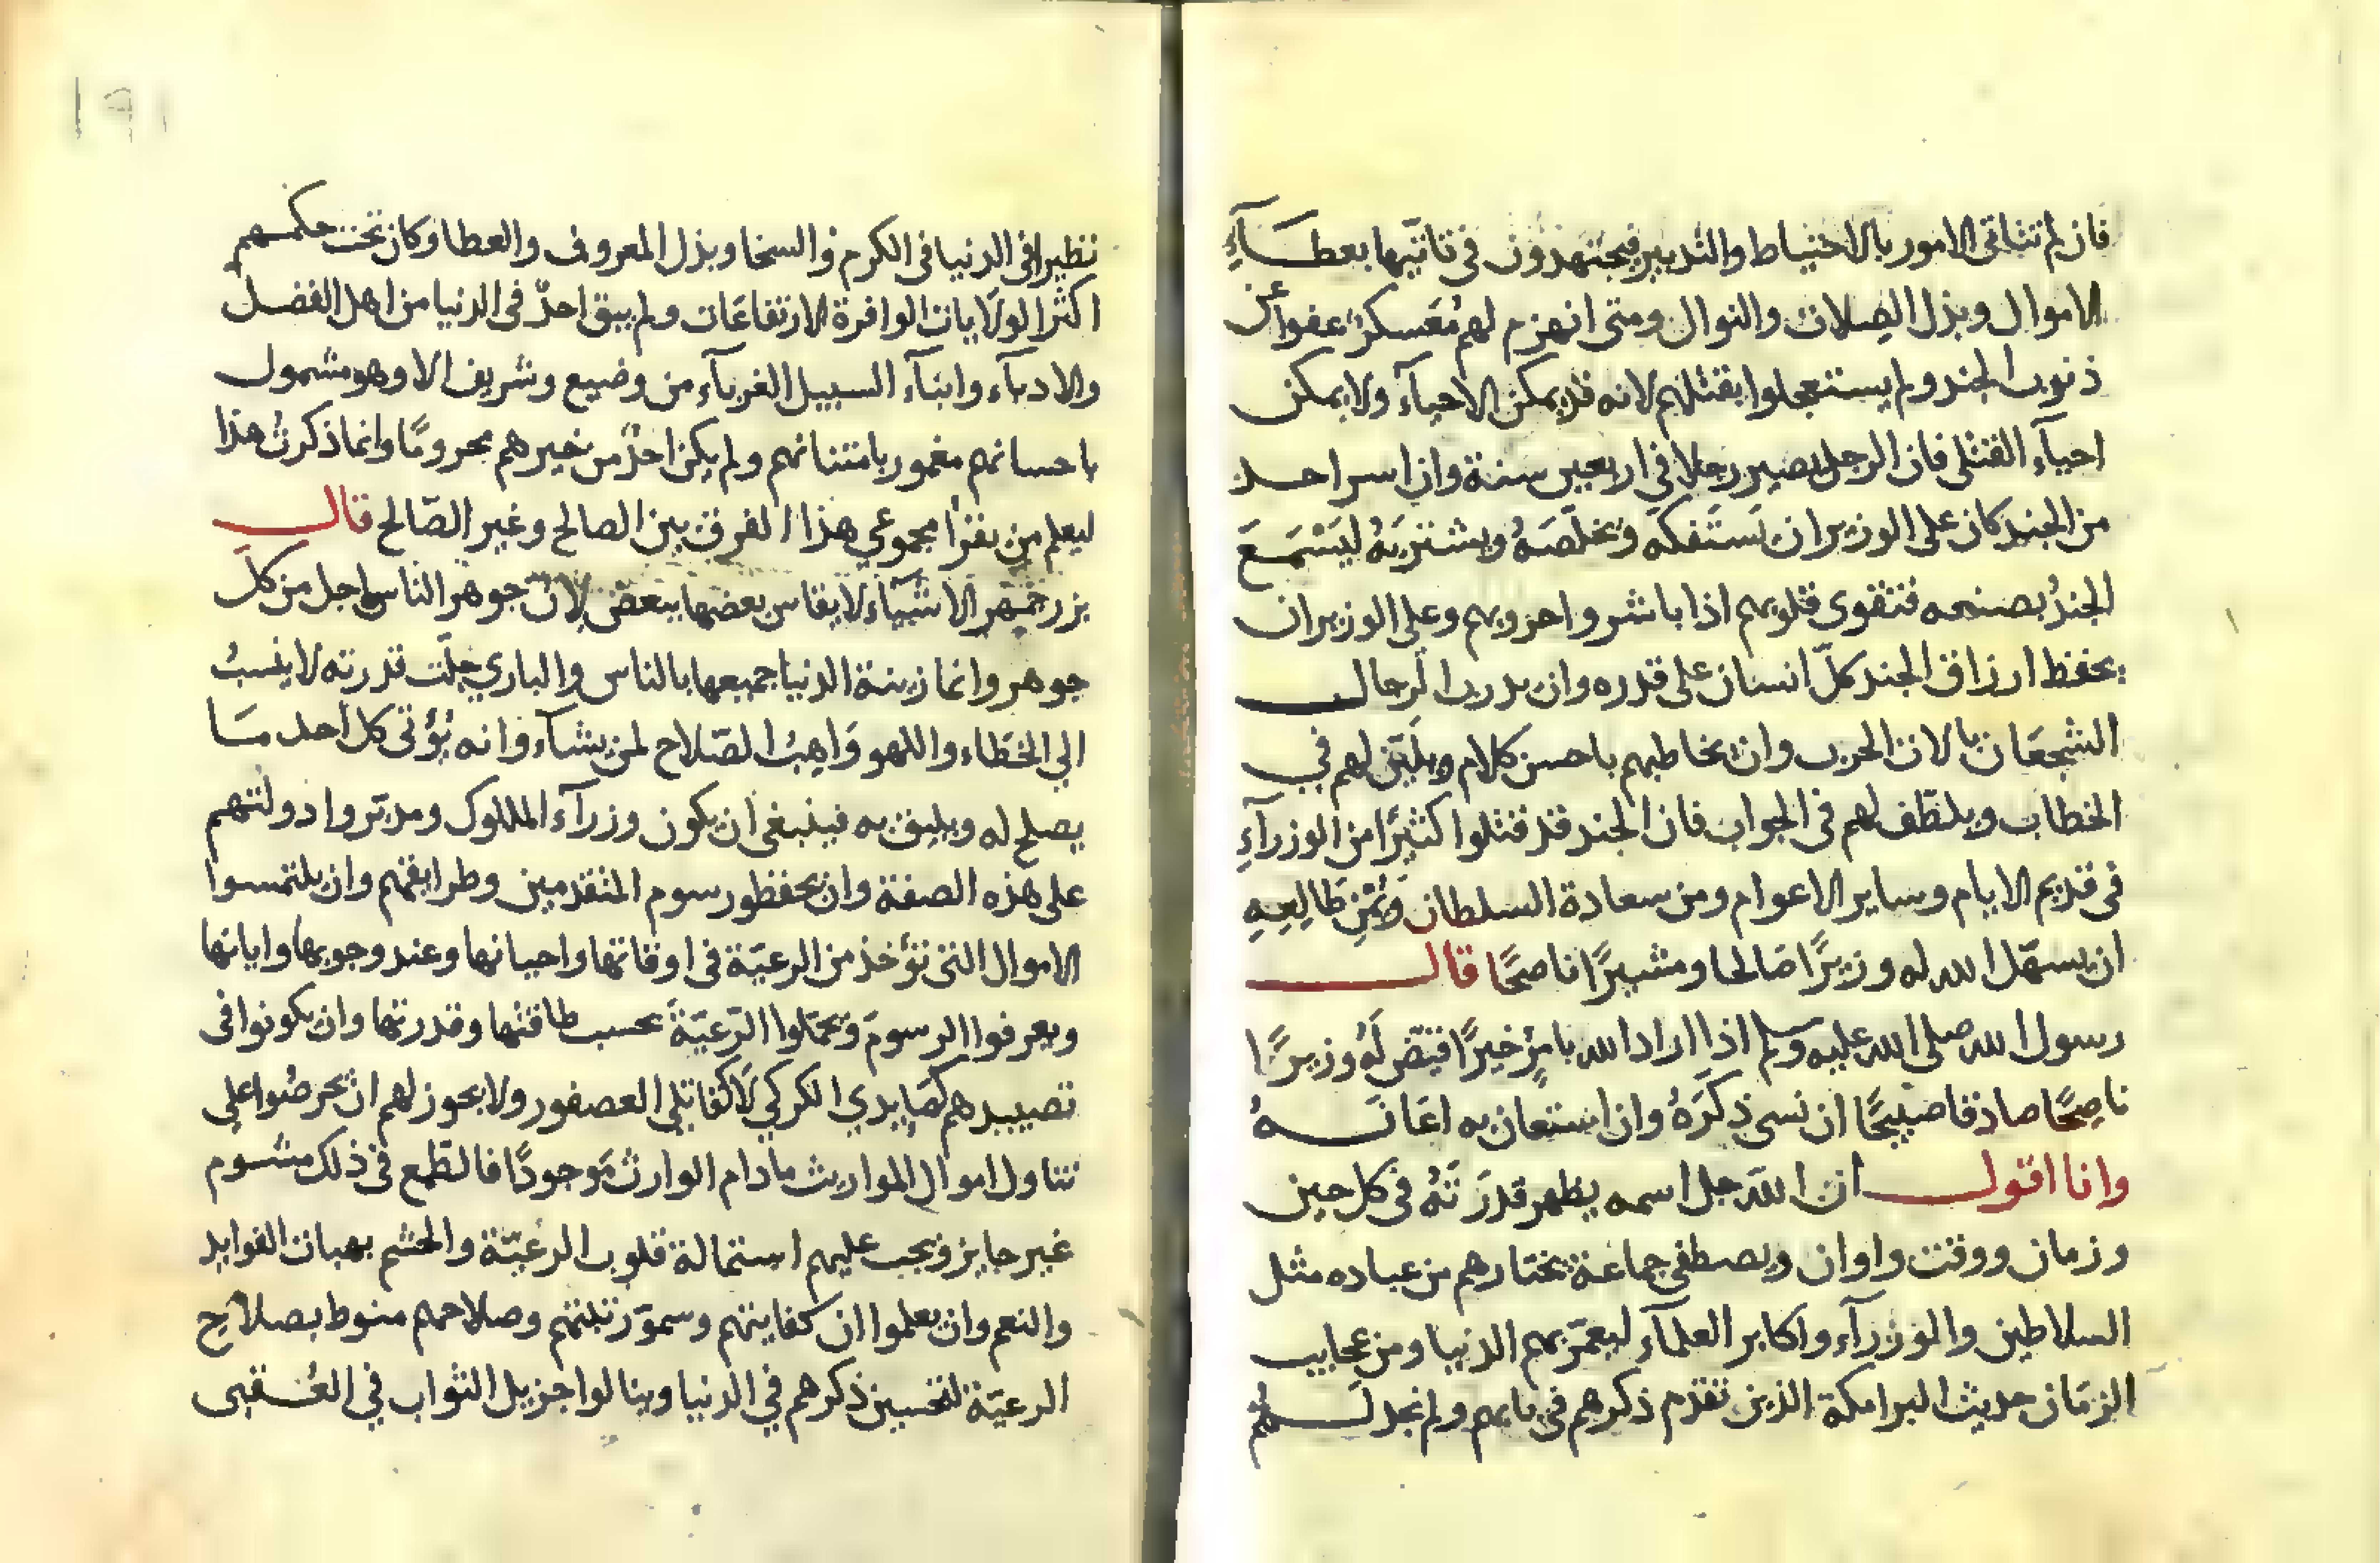 فان لم تتاتى الامور بالاحتياط والتدبير فيجتهدون في تاتيها بعطـآء
الاموال وبذل الصِلات والنوال ومتى انهزم لهم مُعَسكرٌ عفوا عن
ذنوب الجند ولم يستعجلوا بقتلهم لانه قد يمكن الاحيآء ولا يمكن
احيآء القتلى فان الرجل يصير رجلا في اربعين سنة وان اسر احد
من الجند كان على الوزير ان يَستَفكه وَيخلّصَهُ ويشتريَهُ ليَسْمَعَ
الجندُ بصنعه فتقوى قلوبهم اذا باشروا حروبهم وعلى الوزير ان
يحفظ ارزاق الجند كلّ انسان على قدره وان يدرب الرجال
الشجعَان بالات الحرب وان يخاطبهم باحسن كلام ويليّن لهم في
الخطاب ويلطّف لهم في الجواب فان الجند قد قتلوا كثيرًا من الوزرآءِ
في قديم الايام وساير الاعوام ومن سعادة السلطان وَيُمْنِ طَالِعِهِ
ان يسهّل الله له وزيرًا صَالحا ومشيرًا ناصحًا قال
رسول الله صلى الله عليه وسلم اذا اراد الله بامِرٍ خيرًا قيّض لَهُ وزيرًا
ناصِحًا صادقا صبيحًا ان نسي ذِكَرَهُ وان استعان به اعَانَهُ
وانا اقول ان اللّه جل اسمه يظهر قدرَتَهُ في كل حين
وزمان ووقت واوان ويصطفي جماعة يختارهم من عباده مثل
السلاطين والوزرآء واكابر العلمآء ليعمّر بهم الدنيا ومن عجايب
الزمَان حديث البرامكة الذين تقدم ذكرهم في بابهم ولم نجد لَهُم
١٩١
نظيرا في الدنيا في الكرم والسخا وبذل المعروف والعطا وكان تحت حكمهم
اكثر الولَايات الوافرة الارتفاعَات ولم يبق احدٌ في الدنيا من اهل الفضل
والادبآء وابنآء السبيل الغربآء من وضيع وشريف الا وهو مشمول
باحسانهم مغمور بامتنانهم ولم يكن احدٌ من خيرهم محرومًا وانما ذكرتُ هذا
ليعلم من يقرأ مجموعي هذا الفرق بين الصالح وغير الصّالح قال
بزرجمهر الاشيآء لا يقاس بعضها ببعض لان جوهر الناس اجل من كل
جوهر وانما زينة الدنيا جميعها بالناس والباري جلّت قدرته لا ينسبُ
الي الخطَاء واللهو وَاهِبُ الصّلاح لمن يشآء وانه يُؤتي كل احد مَا
يصلح له ويليق به فينبغي ان يكون وزرآء الملوك ومدبّروا دولتهم
على هذه الصفة وان يحفظو رسوم المتقدمين وطرايقهم وان يلتمسوا
الاموال التي تؤخذ من الرعيّة في اوقاتها واحيانها وعند وجوبها واياتها
ويعرفوا الرسومَ وَيحمّلوا الرّعيّةَ بحسب طاقتها وقدرتها وان يكونوا في
تصييدهم كصَايدي الكركي لَا كقاتلي العصفور ولا يجوز لهم ان يحرصُوا على
تناول اموال المواريث ما دام الوارث مَوجودًا فالطّمع في ذلك مشوم
غير جايز ويجب عليهم استمالة قلوب الرعيّة والحشم بهبات الفوايد
والنعم وان يعلموا ان كفايتهم وسموّ رتبتهم وصلاحهم منوط بصلاح
الرعيّة لتحسين ذكرهم في الدنيا وينالوا جزيل الثواب في العُقبى